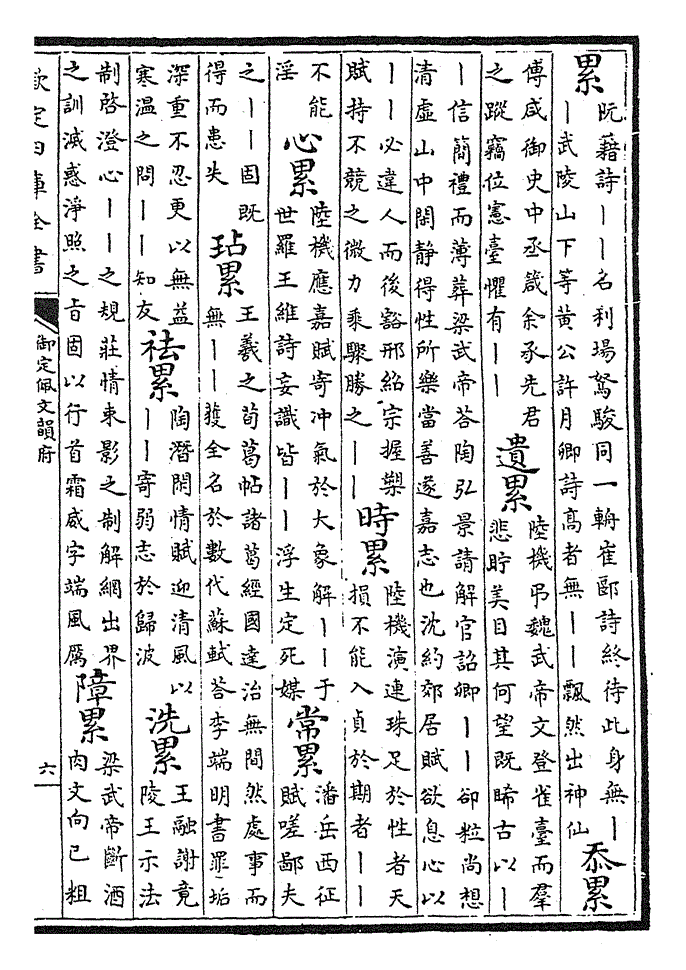 累
阮籍詩丨丨名利場駑駿同一輈崔郾詩終待此身無丨
丨武陵山下等黃公許月卿詩高者無丨丨飄然出神仙
忝累
傅咸御史中丞箴余承先君
之蹤竊位憲臺懼有丨丨
遺累
陸機弔魏武帝文登雀臺而羣
悲貯美目其何望既睎古以丨
丨信簡禮而薄葬梁武帝荅陶弘景請解官詔卿丨丨卻粒尚想
清虛山中閑静得性所樂當善遂嘉志也沈約郊居賦欲息心以
丨丨必違人而後豁邢紹宗握槊
賦持不競之微力乘驟勝之丨丨
時累
陸機演連珠足於性者天
損不能入貞於期者丨丨
不能
淫
心累
陸機應嘉賦寄冲氣於大象解丨丨于
世羅王維詩妄識皆丨丨浮生定死媒
常累
潘岳西征
賦嗟鄙夫
之丨丨固既
得而患失
玷累
王羲之荀葛帖諸葛經國達治無間然處事而
無丨丨獲全名於數代蘇軾荅李端明書罪垢
深重不忍更以無益
寒温之問丨丨知友
袪累
陶潛閑情賦迎清風以
丨丨寄弱志於歸波
洗累
王融謝竟
陵王示法
制啓澄心丨丨之規莊情束影之制解網出界
之訓滅惑淨照之旨固以行首霜威字端風厲
障累
梁武帝斷酒
肉文向已粗
欽定四庫全書
御定佩文韻府
六